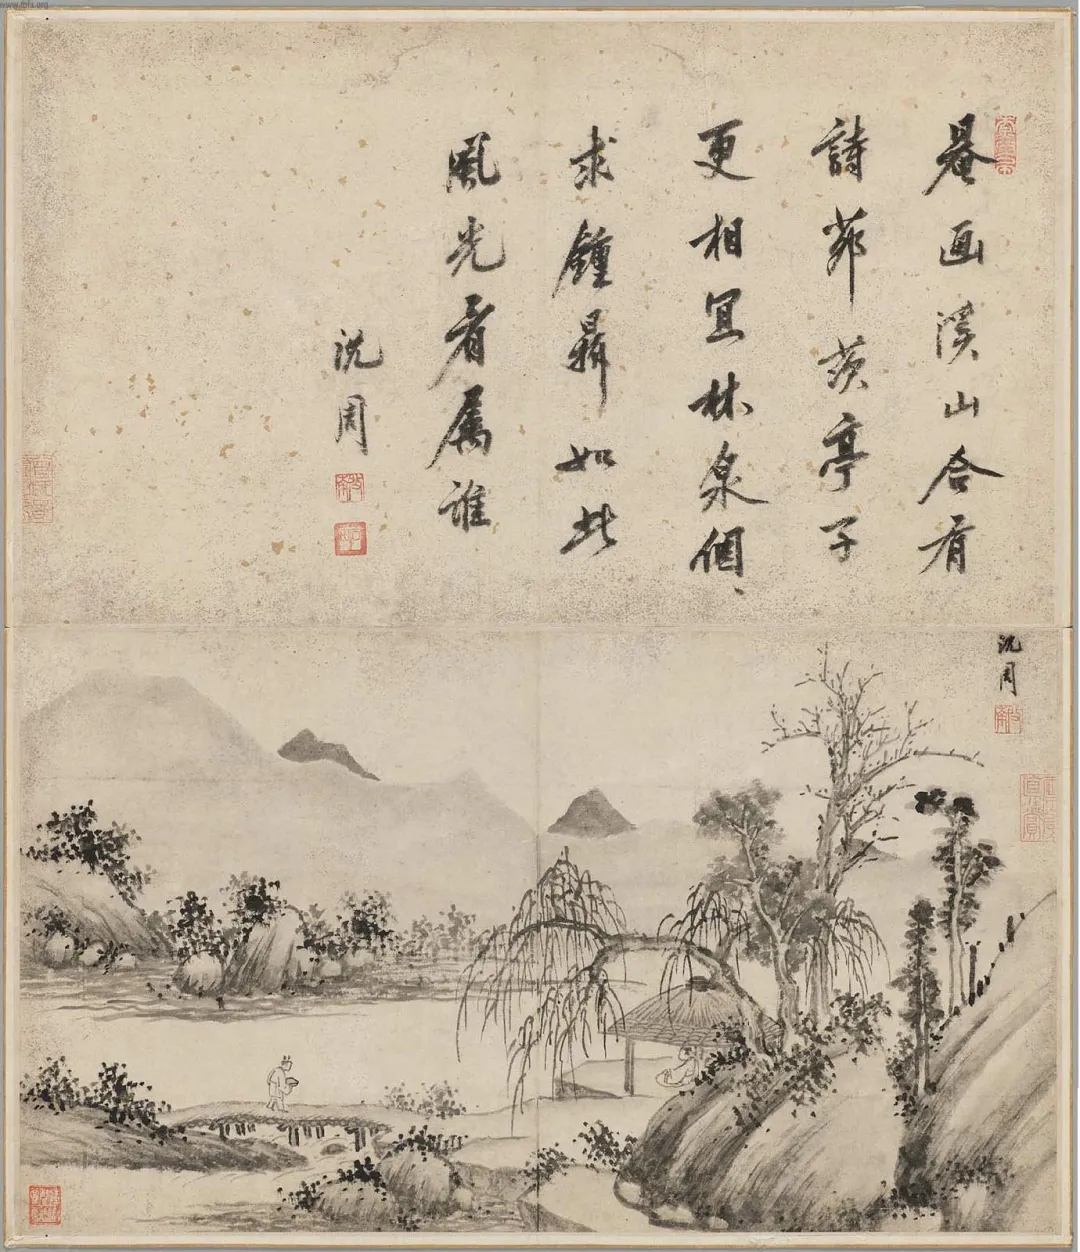 罨画溪山合有
詩茆茨亭子
更相宜林泉個〻
求鍾鼎如此
風光看屬誰
沈周
沈周